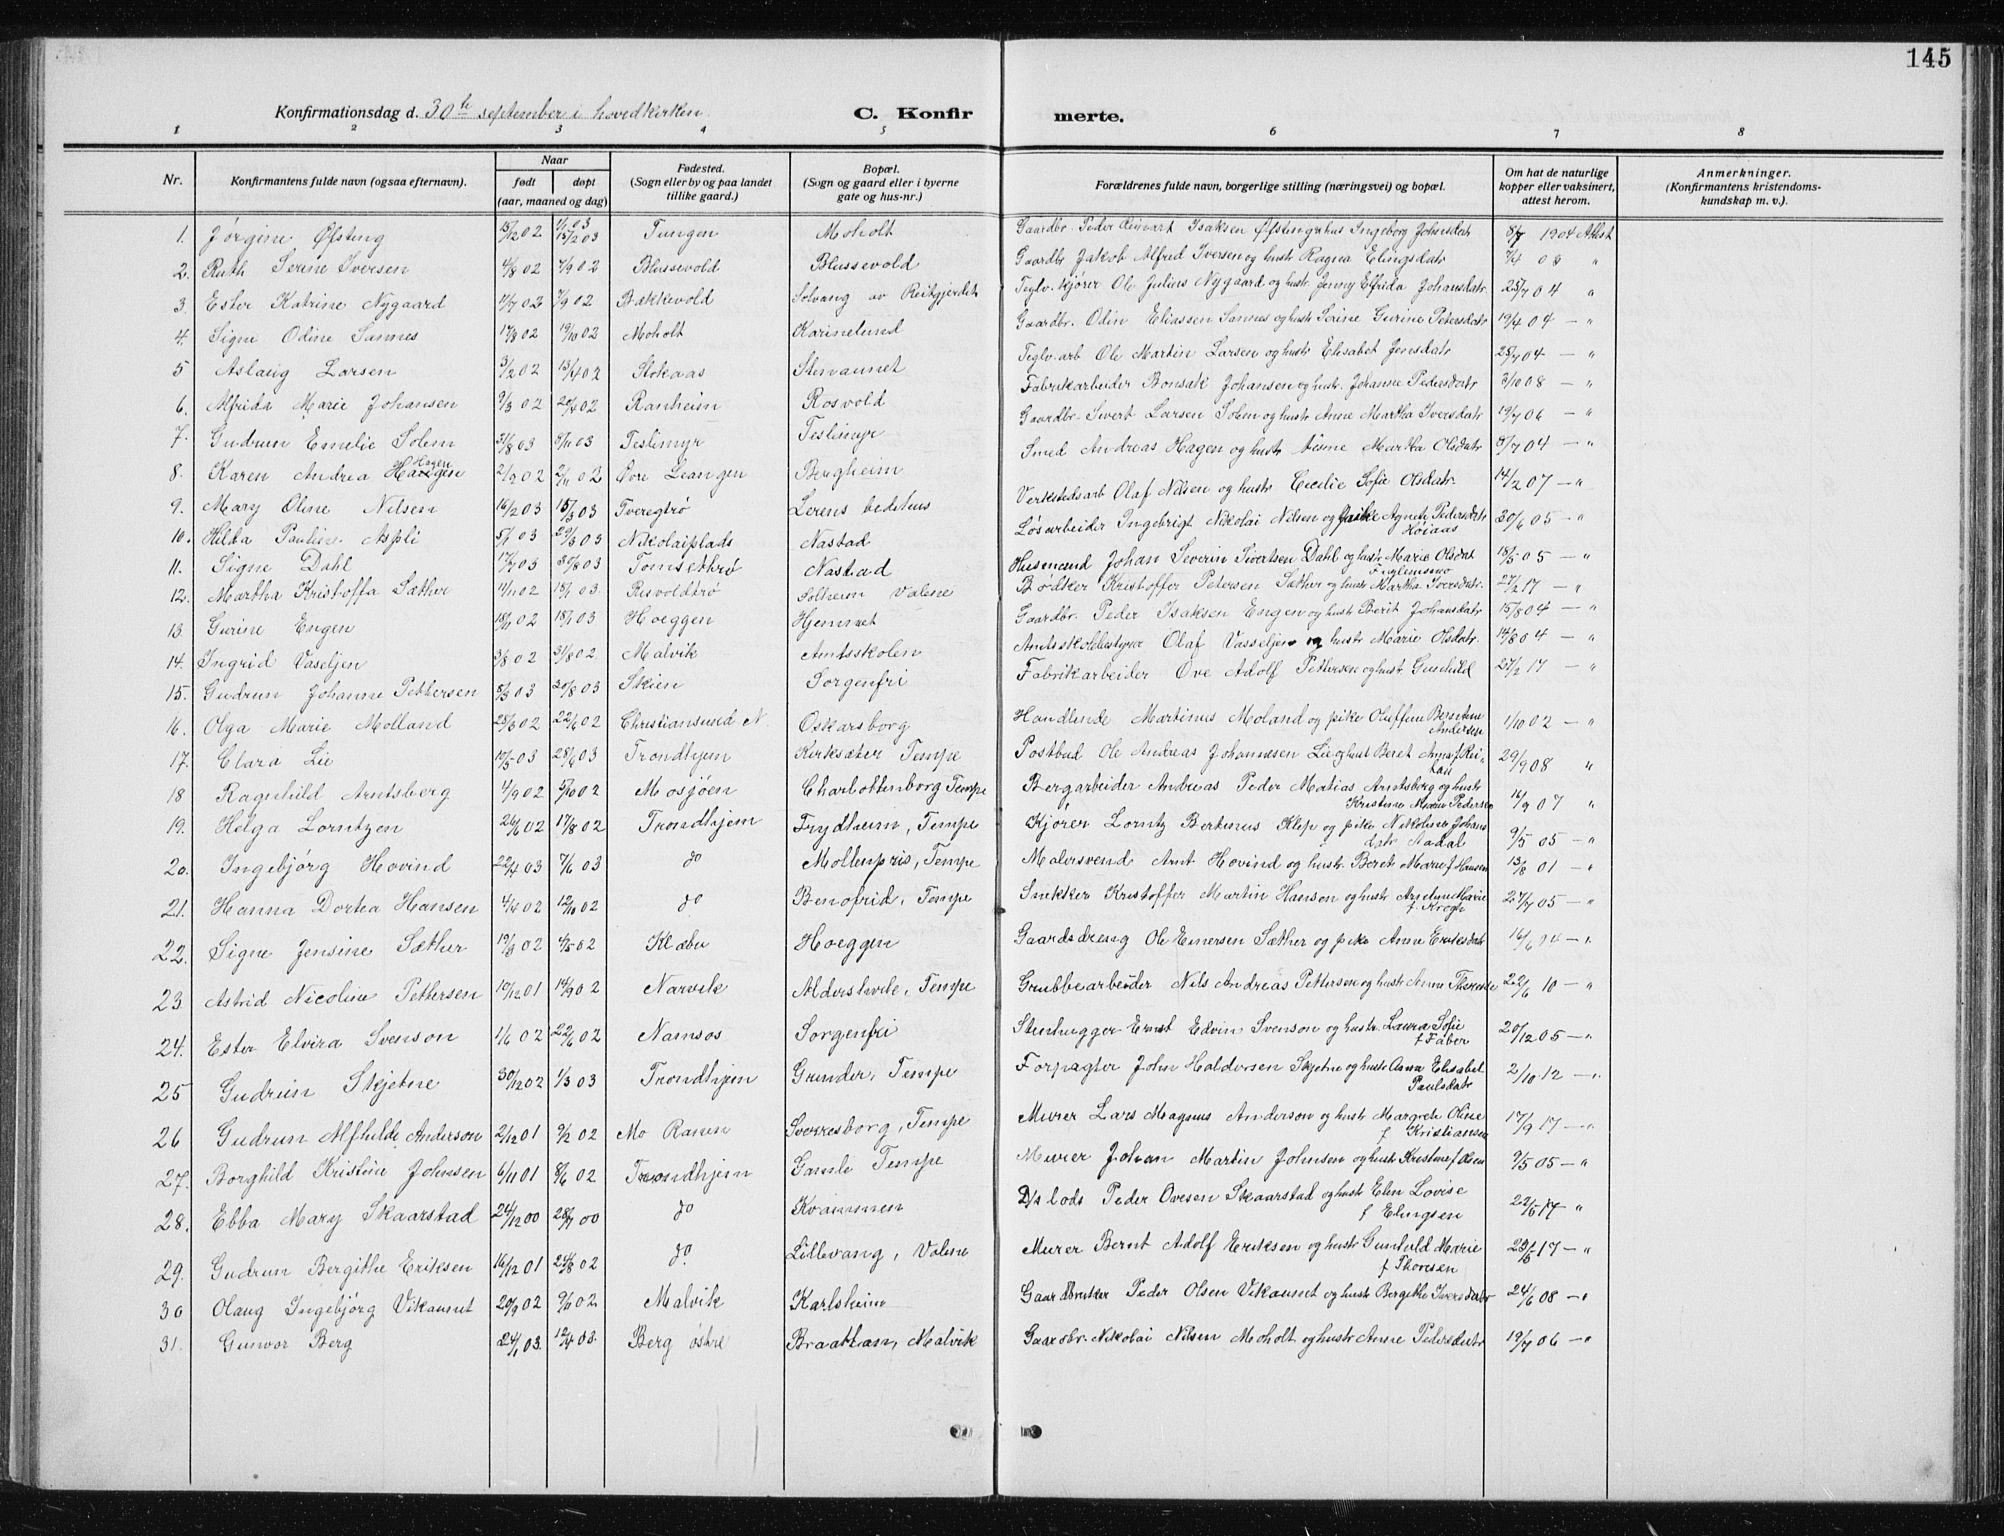 145
Konfirmationsdag d. 30te september i hovedkirken C. Konfir merte.
1 2 3 4 5 6 7 8
Nr. Konfirmantens fulde navn (ogsaa efternavn). Naar født døpt (aar, maaned og dag) Fødested. (Sogn eller by og paa landet tillike gaard.) Bopæl. (Sogn og gaard eller i byerne gate og hus-nr.) Forældrenes fulde navn, borgerlige stilling (næringsvei) og bopæl. Om hat de naturlige kopper eller vaksinert, attest herom. Anmerkninger. (Konfirmantens kristendoms-kundskap m. v.)
1. Jørgine Øfsting 15/12 02 15/2 03 Tungen Moholt Gaardbr. Peder Isaksen Øfsting hus Ingeborg Johansdatr 8/7 1904 Attest
2. Ruth Serine Iversen 4/8 02 7/9 02 Blussevold Blussevold Gaardbr Jakob Alfred Iversen og hustr Ragna Elingsdatr "
3. Ester Katrine Nygaard 17/7 02 7/9 02 Bækkevold Solvang av Reitgjerdet Teglv. kjører Ole Julius Nygaard og hustr. Jenny Elfrida Johansdatr. 25/7 04 "
4. Signe Odine Sannes 17/8 02 19/10 02 Moholt Karinelund Gaardbr. Odin Eliassen Sannes og hustr Serine Gurine Petersdatr 19/4 04 — "
5 Aslaug Larsen 3/2 02 13/4 02 Stokaas Stenaunet Teglv. arb Ole Martin Larsen og hustr Elisabet Jensdatr 25/7 04 — "
6. Alfrida Marie Johansen 9/3 02 20/4 02 Ranheim Rosvold Fabrikarbeider Bonsak Johansen og hustr. Johanne Pedersdatr 3/10 08 — "
7. Gudrun Emelie Solem 31/8 03 8/11 03 Teslimyr Teslimyr Gaardbr. Sivert Larsen Solem og hustr Anne Martha Iversdatr 19/7 06 — "
8. Karen Andrea Haugen Hagen 2/9 02 2/11 02 Øvre Leangen Bergheim Smed Andreas Hagen og hustr Anne Martha Olsdatr 8/7 04 — "
9. Mary Oline Nilsen 16/2 03 15/3 03 Tveregtrø Lerens bedehus Verkstedsarb Olaf Nilsen og hustr Cecilie Sofie Olsdatr. 14/2 07 — "
10. Hilda Pauline Aspli 5/1 03 29/3 03 Nikolaiplads Nastad Løsarbeider Ingebrigt Nikolai Nilsen og pike Agnete Pedersdatr Høiaas 30/6 05 — "
11. Signe Dahl 17/7 03 30/8 03 Tomsethrø Nastad Husmand Johan Severin Sivertsen Dahl og hustr Marie Olsdat 18/5 05 — "
12. Martha Kristoffa Sæther 14/11 02 18/1 03. Risvoldtrø Solheim Valene Bødker Kristoffer Petersen Sæther og hustr Martha Iversdatr. 27/2 17 — "
13 Gurine Engen 18/11 02 18/1 03 Hoeggen Hjemmet Gaardbr. Peder Isaksen Engen og hustr Berit Johansdatr 15/8 04 — "
14. Ingrid Vaseljen 3/8 02 31/8 02. Malvik Amtsskolen Amtsskolebestyrer Olaf Vasseljen og hustr Marie Olsdatr. 14/8 04 — "
15. Gudrun Johanne Pettersen 5/3 03 20/8 03 Skien Sorgenfri Fabrikarbeider Ove Adolf Pettersen og hustr. Gunhild 27/2 17 — "
16. Olga Marie Molland 28/3 02 22/6 02 Christiansund N. Oskarsborg Handlende Martinus Moland og pike Oluffine Berntine Andersen 1/10 02 — "
17. Clara Lie 10/5 03 28/6 03 Trondhjem Kirksæter Tempe Postbud Ole Andreas Johannesen Lie og hust Beret Anna f. Rei- tan 29/9 08 "
18 Ragnhild Arntsberg 4/9 02 5/10 02 Mosjøen Charlottenborg Tempe Bergarbeider Andreas Peder Matias Arntsberg og hustr Kristine Marie Pedersen 16/9 07 "
19. Helga Lorntzen 26/6 02 17/8 02 Trondhjem Frydheim, Tempe Kjører Lorntz Bertinus Klep og pike Nikoline Johans datr Aadal 9/5 05 — "
20. Ingebjørg Hovind 22/4 03 7/6 03 do Mollenpris, Tempe Malersvend Arnt Hovind og hustr. Beret Marie f. Hansen 13/8 01 — "
21. Hanna Dortea Hansen 4/4 02 12/10 02 do Benofrid, Tempe Snekker Kristoffer Martin Hansen og hustr Marie f. Krogh 27/7 05 — "
22. Signe Jensine Sæther 19/3 02 4/5 02 Klæbu Hoeggen Gaardsdreng Ole Einersen Sæther og pike Anne Eriksdatr 16/6 14 — "
23 Astrid Nicoline Pettersen 10/12 01 14/9 02 Narvik Aldershvile, Tempe Grubbearbeider Nils Andreas Pettersen og hustr Anne 22/6 10 — "
24. Ester Elvira Svenson 1/6 02 22/6 02 Namsos Sorgenfri Stenhugger Ernst Edvin Svenson og hustr. Laura Sofie f Faber 20/12 05 — "
25 Gudrun Skjetne 30/12 02 1/3 03 Trondhjem Grunder, Tempe Forpagter John Haldorsen Skjetne og hustr Anna Elisabet Paulsdatr 2/10 12 — "
26 Gudrun Alfhilde Anderson 2/12 01 9/2 02 Mo Ranen Svorresborg, Tempe Murer Lars Magnus Anderson og hustr Margrete Oline f Kristiansen 17/9 17 — "
27. Borghild Kristine Johnsen 6/11 01 8/6 02 Trondhjem Gamle Tempe Murer Johan Martin Johnsen og hustr Kristine f. Olsen 9/5 05 — "
28. Ebba Mary Skaarstad 24/12 00 28/7 00 do Kvammen D/s lods Peder Ovesen Skaarstad og hustr Elen Lovise f Elingsen 22/5 17 "
29. Gudrun Bergitte Eriksen 16/12 01 24/8 02 do. Lillevang, Valene Murer Bernt Adolf Eriksen og hustr Gunhild Marie f Thoresen 23/5 17 — "
30 Olaug Ingebjørg Vikaunet 20/9 02 9/6 02 Malvik Karlsheim Gaardbruker Peder Olsen Vikaunet og hustr Bergitte Iversdatr 24/6 08 — "
31. Gunvor Berg 24/1 03. 12/4 03. Berg østre Braattan, Malvik Gaardbr. Nikolai Nilsen Moholt og hustr Anne Pedersdatr 19/7 06 — "